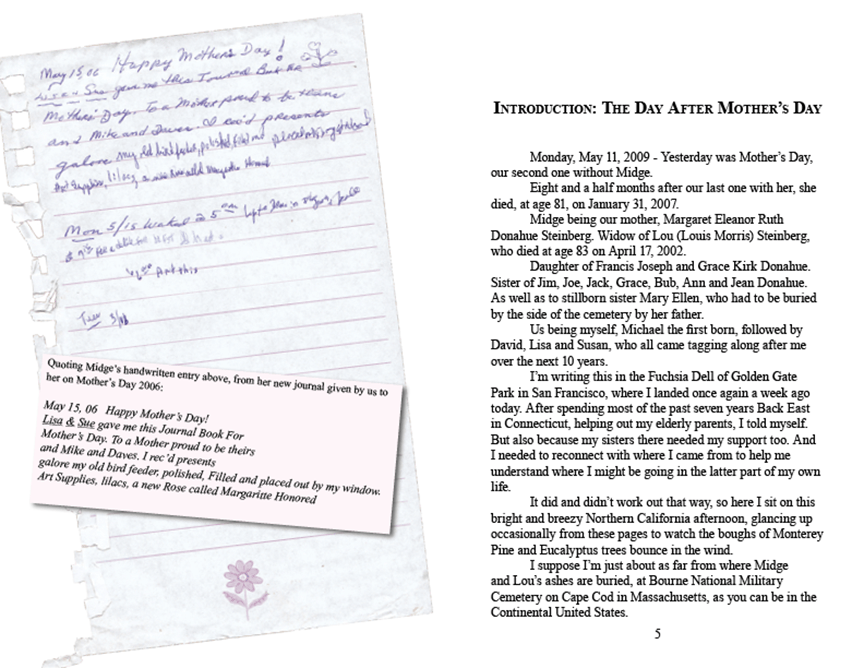 May 15, 06 Happy Mother's Day!
Lisa & Sue gave me this Journal Book For
Mother's Day. To a Mother proud to be theirs
and Mike and Daves. I rec'd presents
galore my old bird feeder, polished, Filled and placed out by my window.
Art Supplies, lilacs, a new Rose called Margaritte Honored
Mon 5/15 Waked @ 5
Tues 5/16
Quoting Midge's handwritten entry above, from her new journal given by us to
her on Mother's Day 2006:
May 15, 06 Happy Mother's Day!
Lisa & Sue gave me this Journal Book For
Mother's Day. To a Mother proud to be theirs
and Mike and Daves. I rec'd presents
galore my old bird feeder, polished, Filled and placed out by my window.
Art Supplies, lilacs, a new Rose called Margaritte Honored
INTRODUCTION: THE DAY AFTER MOTHER'S DAY
Monday, May 11, 2009 - Yesterday was Mother's Day,
our second one without Midge.
Eight and a half months after our last one with her, she
died, at age 81, on January 31, 2007.
Midge being our mother, Margaret Eleanor Ruth
Donahue Steinberg. Widow of Lou (Louis Morris) Steinberg,
who died at age 83 on April 17, 2002.
Daughter of Francis Joseph and Grace Kirk Donahue.
Sister of Jim, Joe, Jack, Grace, Bub, Ann and Jean Donahue.
As well as to stillborn sister Mary Ellen, who had to be buried
by the side of the cemetery by her father.
Us being myself, Michael the first born, followed by
David, Lisa and Susan, who all came tagging along after me
over the next 10 years.
I'm writing this in the Fuchsia Dell of Golden Gate
Park in San Francisco, where I landed once again a week ago
today. After spending most of the past seven years Back East
in Connecticut, helping out my elderly parents, I told myself.
But also because my sisters there needed my support too. And
I needed to reconnect with where I came from to help me
understand where I might be going in the latter part of my own
life.
It did and didn't work out that way, so here I sit on this
bright and breezy Northern California afternoon, glancing up
occasionally from these pages to watch the boughs of Monterey
Pine and Eucalyptus trees bounce in the wind.
I suppose I'm just about as far from where Midge
and Lou's ashes are buried, at Bourne National Military
Cemetery on Cape Cod in Massachusetts, as you can be in the
Continental United States.
5